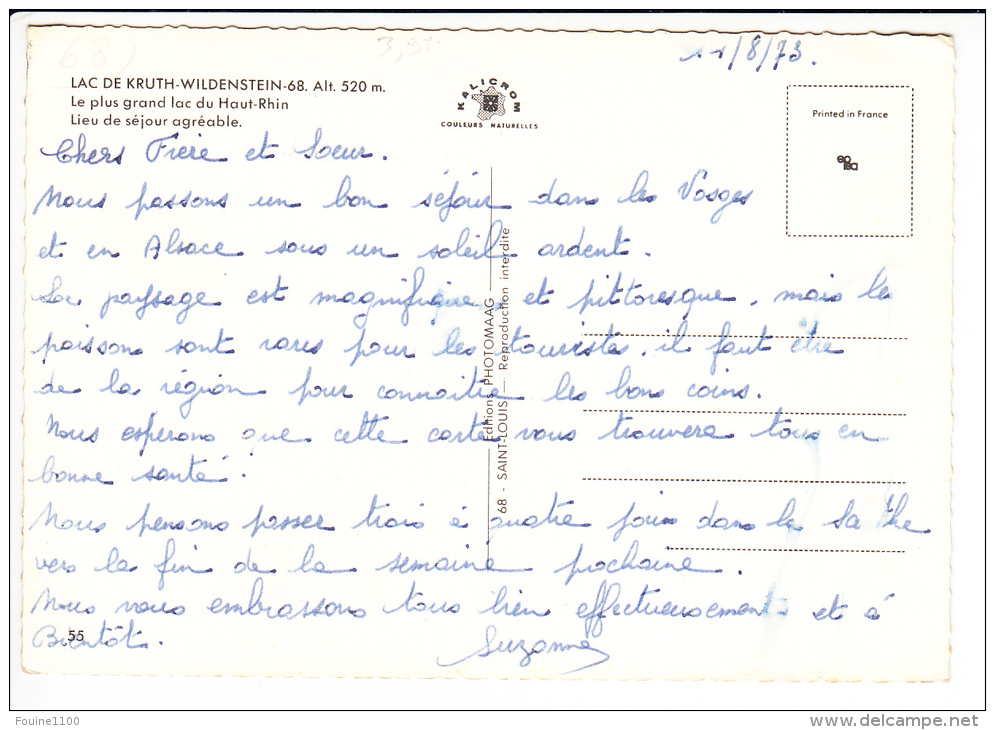 68)
3,31
11/8/73.
LAC DE KRUTH-WILDENSTEIN-68. Alt. 520 m.
Le plus grand lac du Haut-Rhin
Lieu de séjour agréable.
KALICROM
COULEURS NATURELLES
Printed in France
Chers Frère et Soeur.
Nous passons un bon séjour dans les Vosges
et en Alsace sous un soleil ardent.
Le paysage est magnifique et pittoresque, mais le
poisson sont rares pour les touristes, il faut être
de la région pour connaitre les bons coins.
Nous espérons que cette carte vous trouvera tous en
bonne santé.
Nous pensons passer trois à quatre jours dans la Sarthe
vers la fin de la semaine prochaine.
Nous vous embrassons tous bien affectueusement et à
Bientôt.
Suzanne
55
Editions PHOTOMAAG
68 - SAINT-LOUIS — Reproduction interdite
Fouine1100
delcampe.net